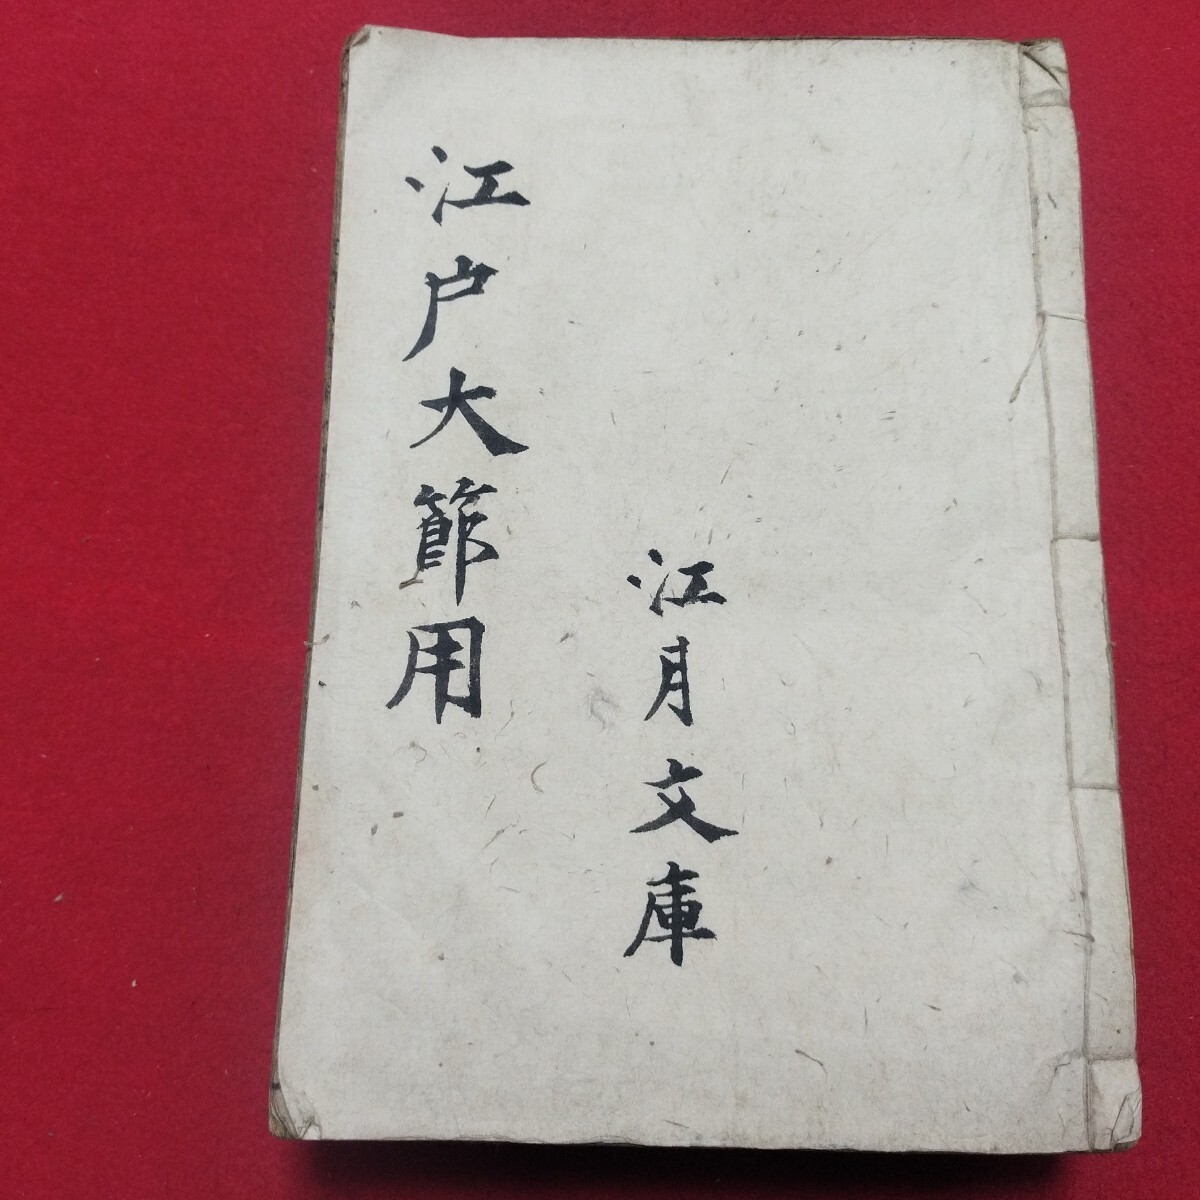 江戸大節用
江月文庫